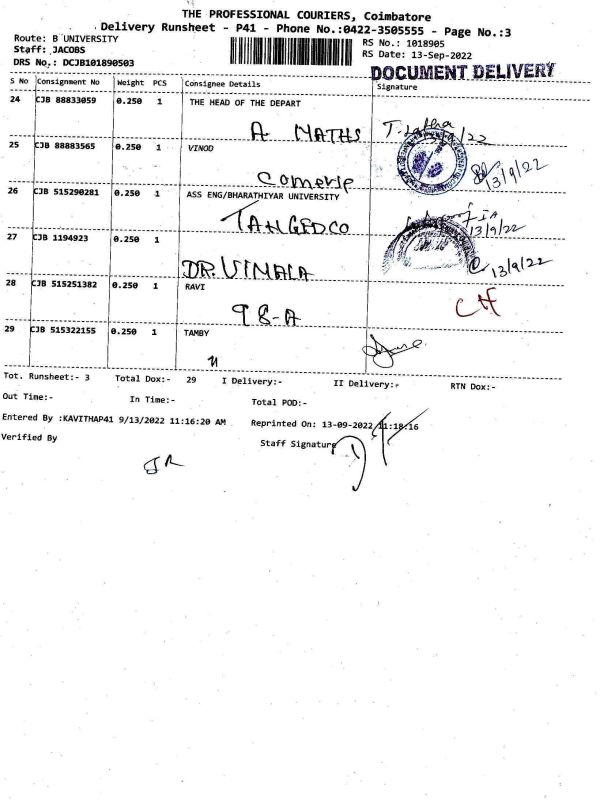 THE PROFESSIONAL COURIERS, Coimbatore
Delivery Runsheet - P41 - Phone No.:0422-3505555 - Page No.:3
Route: B UNIVERSITY
Staff: JACOBS
DRS No,: DCJB101890503
RS No.: 1018905
RS Date: 13-Sep-2022
DOCUMENT DELIVERY
S No Consignment No Weight PCS Consignee Details Signature
24 CJB 88833059 0.250 1 THE HEAD OF THE DEPART
A MATHS
25 CJB 88883565 0.250 1 VINOD
Comerse 13/9/22
26 CJB 515290281 0.250 1 ASS ENG/BHARATHIYAR UNIVERSITY
TANGEDCO 13/9/22
27 CJB 1194923 0.250 1
DR. VIMALA 13/9/22
28 CJB 515251382 0.250 1 RAVI
98-A
29 CJB 515322155 0.250 1 TAMBY
Tot. Runsheet:- 3 Total Dox:- 29 I Delivery:- II Delivery:- RTN Dox:-
Out Time:- In Time:- Total POD:-
Entered By :KAVITHAP41 9/13/2022 11:16:20 AM Reprinted On: 13-09-2022 11:18:16
Verified By Staff Signature
JR